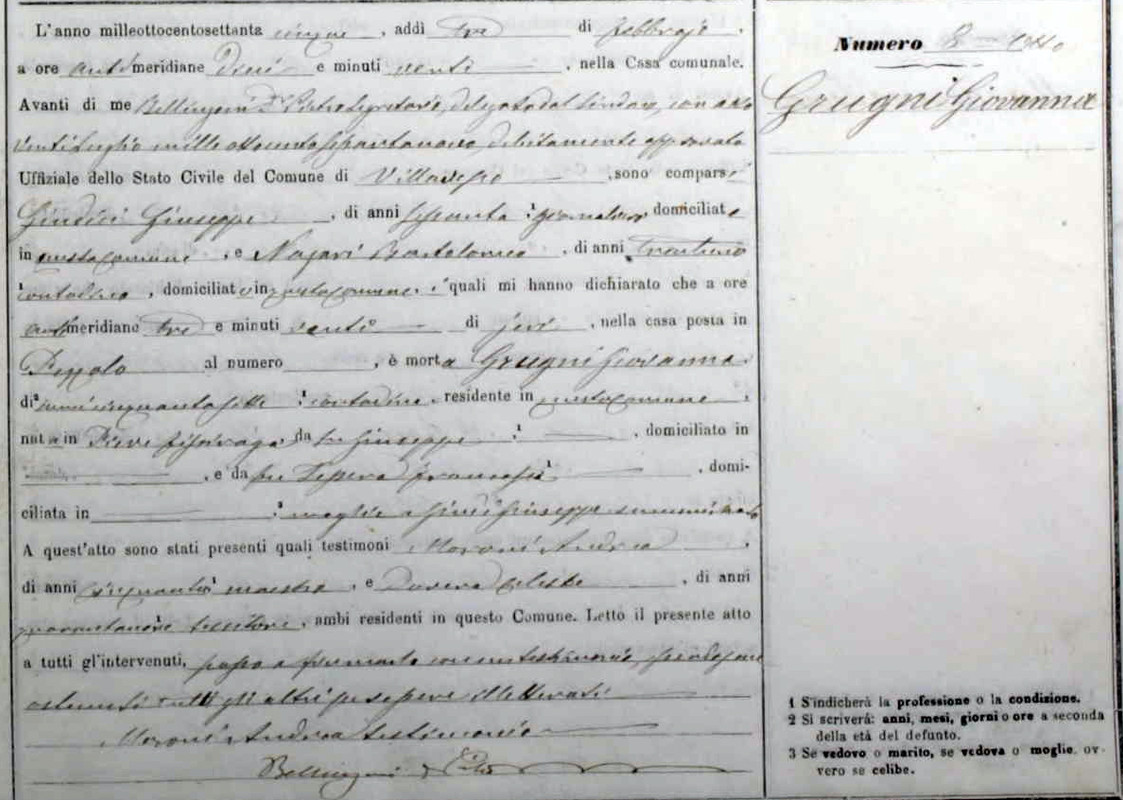 L'anno milleottocentosettanta cinque, addì tre di febbrajo,
a ore antimeridiane dieci e minuti venti, nella Casa comunale.
Avanti di me Bellinzoni Dr Pietro Segretario, delegato dal Sindaco, con atto
venti Luglio mille ottocento sessantanove, debitamente approvato
Uffiziale dello Stato Civile del Comune di Villavesco, sono comparsi
Giudici Giuseppe, di anni sessanta 1 giornaliero domiciliato
in questo Comune, e Najari Bartolomeo, di anni trentuno
1 contadino, domiciliato in questo Comune, i quali mi hanno dichiarato che a ore
antimeridiane tre e minuti venti di jeri, nella casa posta in
al numero, è morta Grugni Giovanna
di 2 anni cinquantasette 1 contadina, residente in questo Comune,
nata in Pieve fissiraga da fu Giuseppe 1, domiciliato in
, e da fu Francesca 1, domi-
ciliata in 3 moglie a Giuseppe
A quest'atto sono stati presenti quali testimoni Moroni Andrea,
di anni cinquanta 1 maestro, e Celeste, di anni
quarantanove 1 tessitore, ambi residenti in questo Comune. Letto il presente atto
a tutti gl'intervenuti, passo a firmarlo con un testimonio, essendosene
astenuti tutti gli altri perchè illetterati
Moroni Andrea testimonio
Bellinzoni Dr Pietro
Numero 8
Grugni Giovanna
1 S'indicherà la professione o la condizione.
2 Si scriverà: anni, mesi, giorni o ore a seconda
della età del defunto.
3 Se vedovo o marito, se vedova o moglie, ov-
vero se celibe.